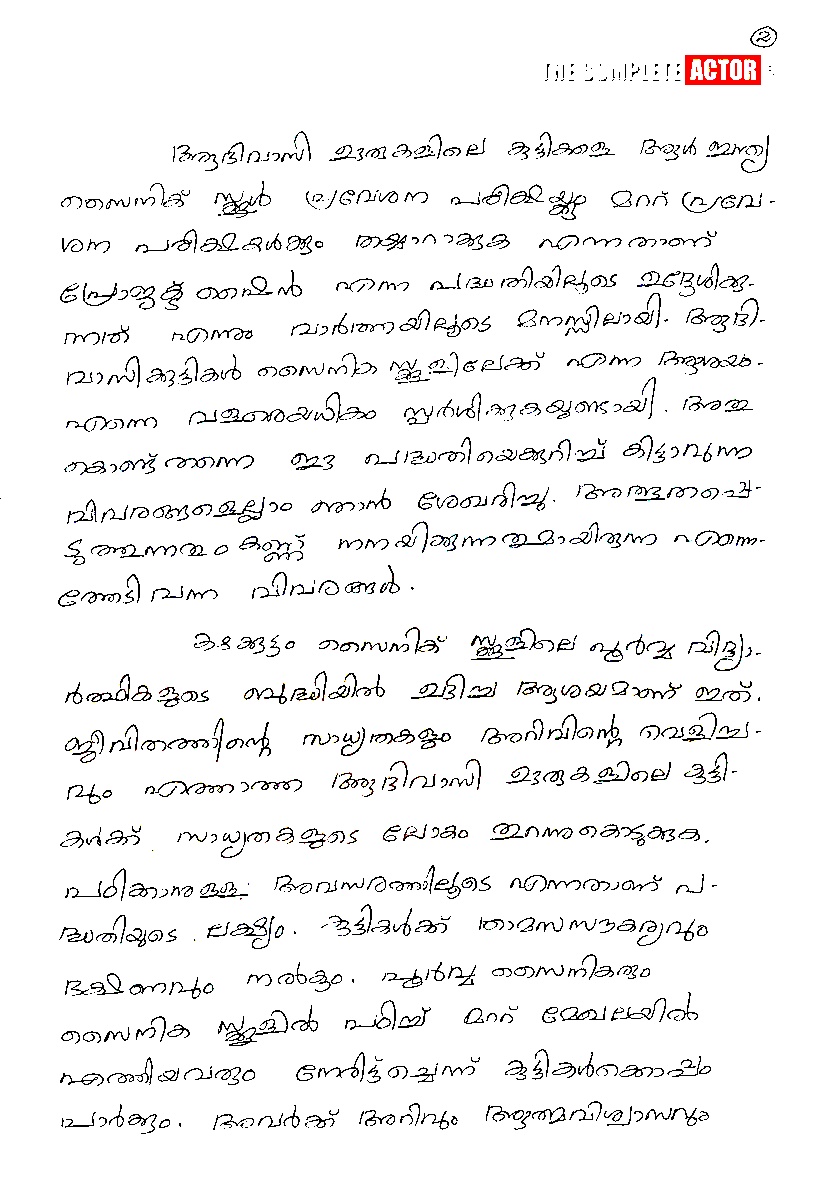 2
THE COMPLETE ACTOR
ആദിവാസി ഊരുകളിലെ കുട്ടികളെ ആൾ ഇന്ത്യ
സൈനിക് സ്കൂൾ പ്രവേശന പരീക്ഷയ്ക്കും മറ്റ് പ്രവേ-
ശന പരീക്ഷകൾക്കും തയ്യാറാക്കുക എന്നതാണ്
പ്രോജക്ട് ഷൈൻ എന്ന പദ്ധതിയിലൂടെ ഉദ്ദേശിക്കു-
ന്നത് എന്നും വാർത്തയിലൂടെ മനസ്സിലായി. ആദി-
വാസികുട്ടികൾ സൈനിക സ്കൂളിലേക്ക് എന്ന ആശയം.
എന്നെ വളരെയധികം സ്പർശിക്കുകയുണ്ടായി. അതു
കൊണ്ട് തന്നെ ഈ പദ്ധതിയെക്കുറിച്ച് കിട്ടാവുന്ന
വിവരങ്ങളെല്ലാം ഞാൻ ശേഖരിച്ചു. അത്ഭുതപ്പെ-
ടുത്തുന്നതും കണ്ണ് നനയിക്കുന്നതുമായിരുന്നു എന്നെ-
ത്തേടി വന്ന വിവരങ്ങൾ.
കഴക്കൂട്ടം സൈനിക് സ്കൂളിലെ പൂർവ്വ വിദ്യാ-
ർത്ഥികളുടെ ബുദ്ധിയിൽ ഉദിച്ച ആശയമാണ് ഇത്.
ജീവിതത്തിന്റെ സാധ്യതകളും അറിവിന്റെ വെളിച്ച-
വും എത്താത്ത ആദിവാസി ഊരുകളിലെ കുട്ടി-
കൾക്ക് സാധ്യതകളുടെ ലോകം തുറന്നുകൊടുക്കുക,
പഠിക്കാനുള്ള അവസരത്തിലൂടെ എന്നതാണ് പ-
ദ്ധതിയുടെ ലക്ഷ്യം. കുട്ടികൾക്ക് താമസസൗകര്യവും
ഭക്ഷണവും നൽകും. പൂർവ്വ സൈനികരും
സൈനിക സ്കൂളിൽ പഠിച്ച് മറ്റ് മേഖലയിൽ
എത്തിയവരും നേരിട്ട് ചെന്ന് കുട്ടികൾക്കൊപ്പം
പാർക്കും. അവർക്ക് അറിവും ആത്മവിശ്വാസവും